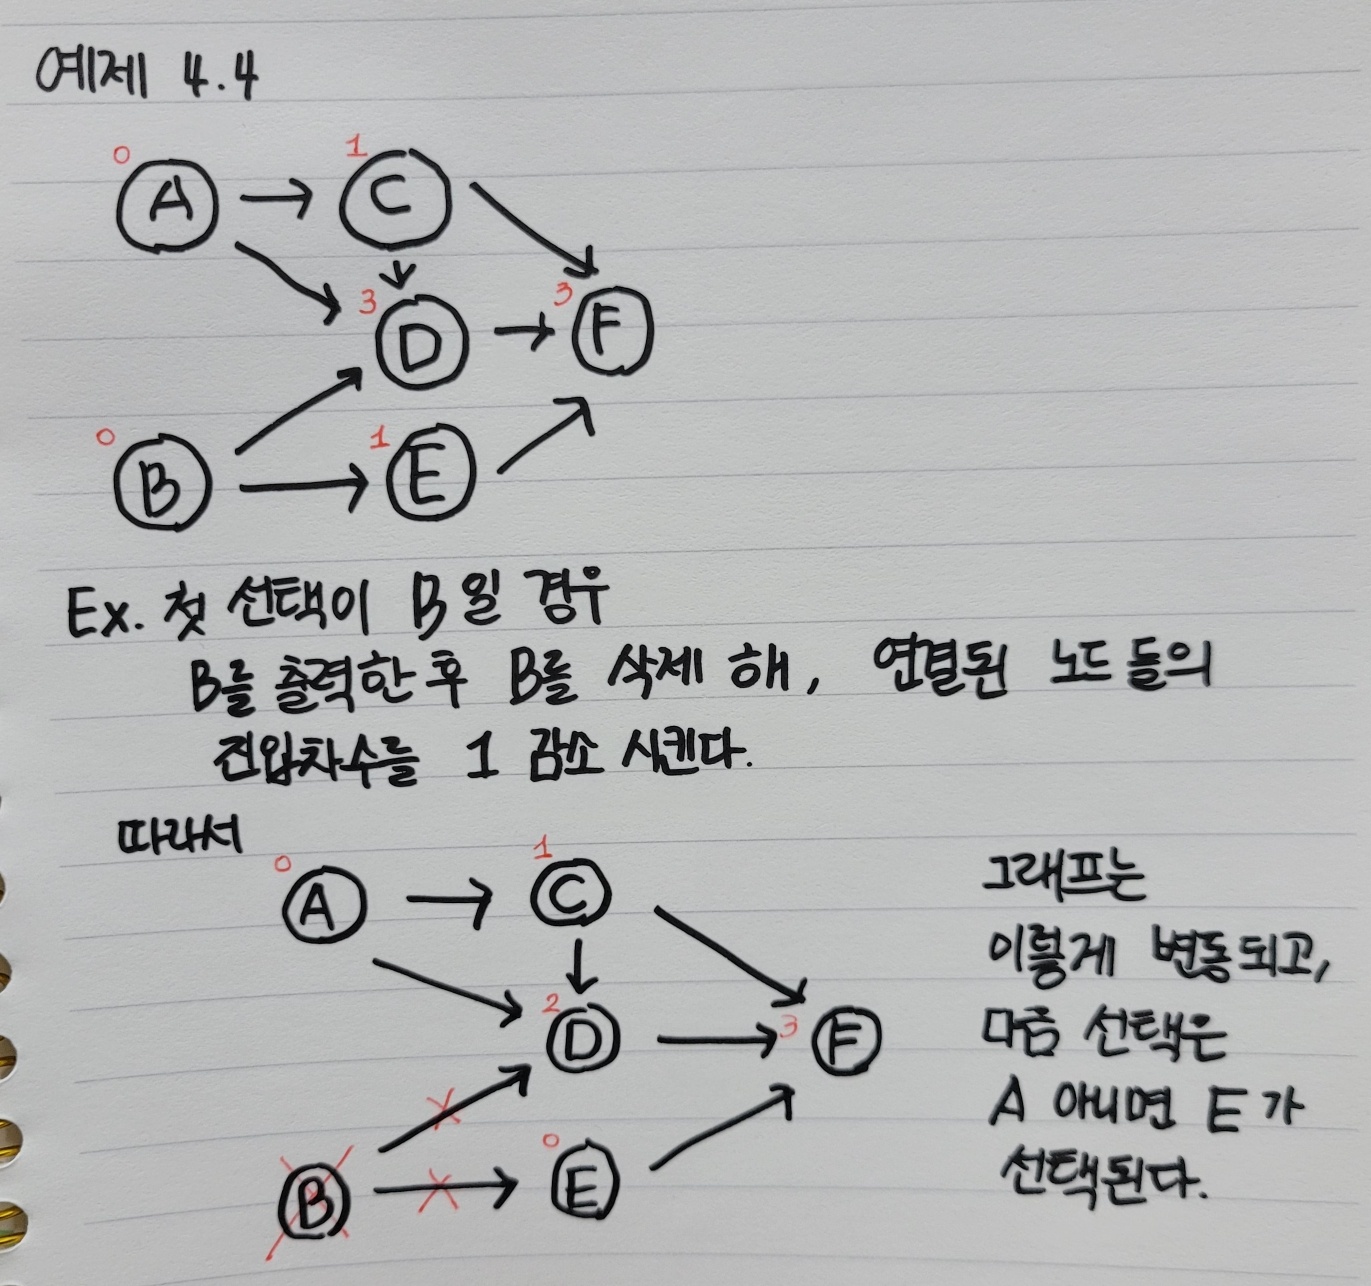 예제 4.4
0 1
A → C
3 3
D → F
0 1
B → E
Ex. 첫 선택이 B일 경우
B를 출력한 후 B를 삭제 해, 연결된 노드 들의
진입차수를 1 감소 시킨다.
따라서
0 1
A → C
2 3
D → F
0
B → E
그래프는
이렇게 변동되고,
다음 선택은
A 아니면 E가
선택된다.